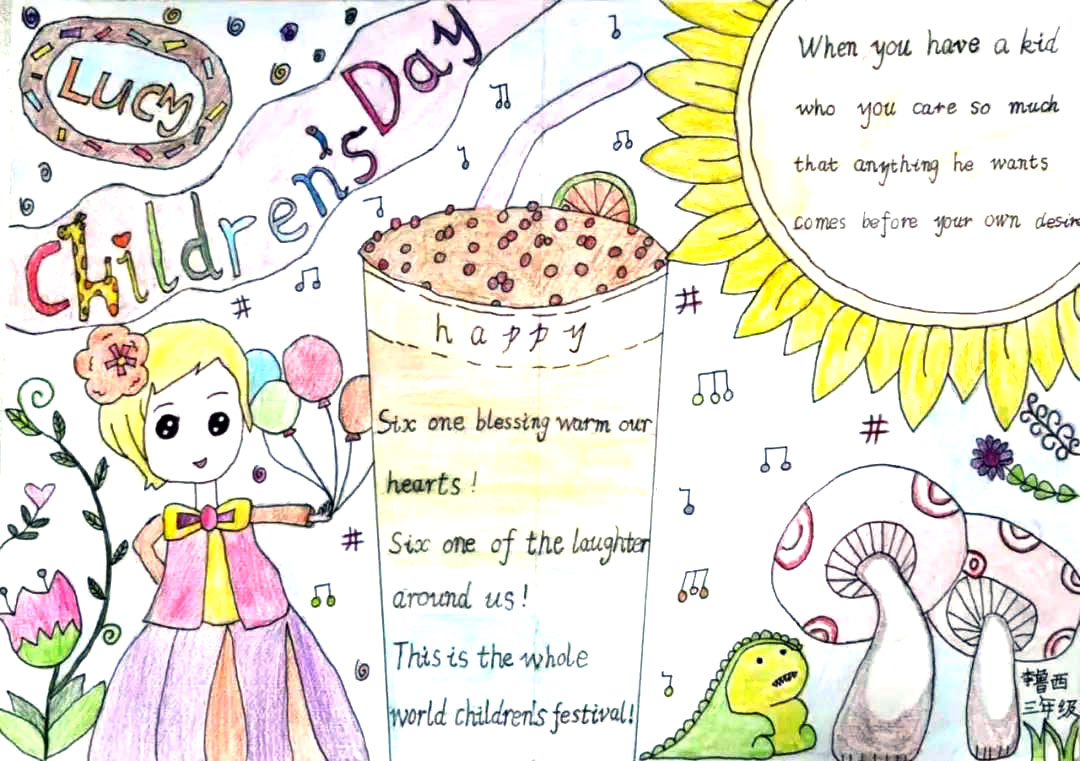 LUCY
Children's Day
When you have a kid
who you care so much
that anything he wants
comes before your own desir
happy
Six one blessing warm our
hearts!
Six one of the laughter
around us!
This is the whole
world children's festival!
李鲁西
三年级